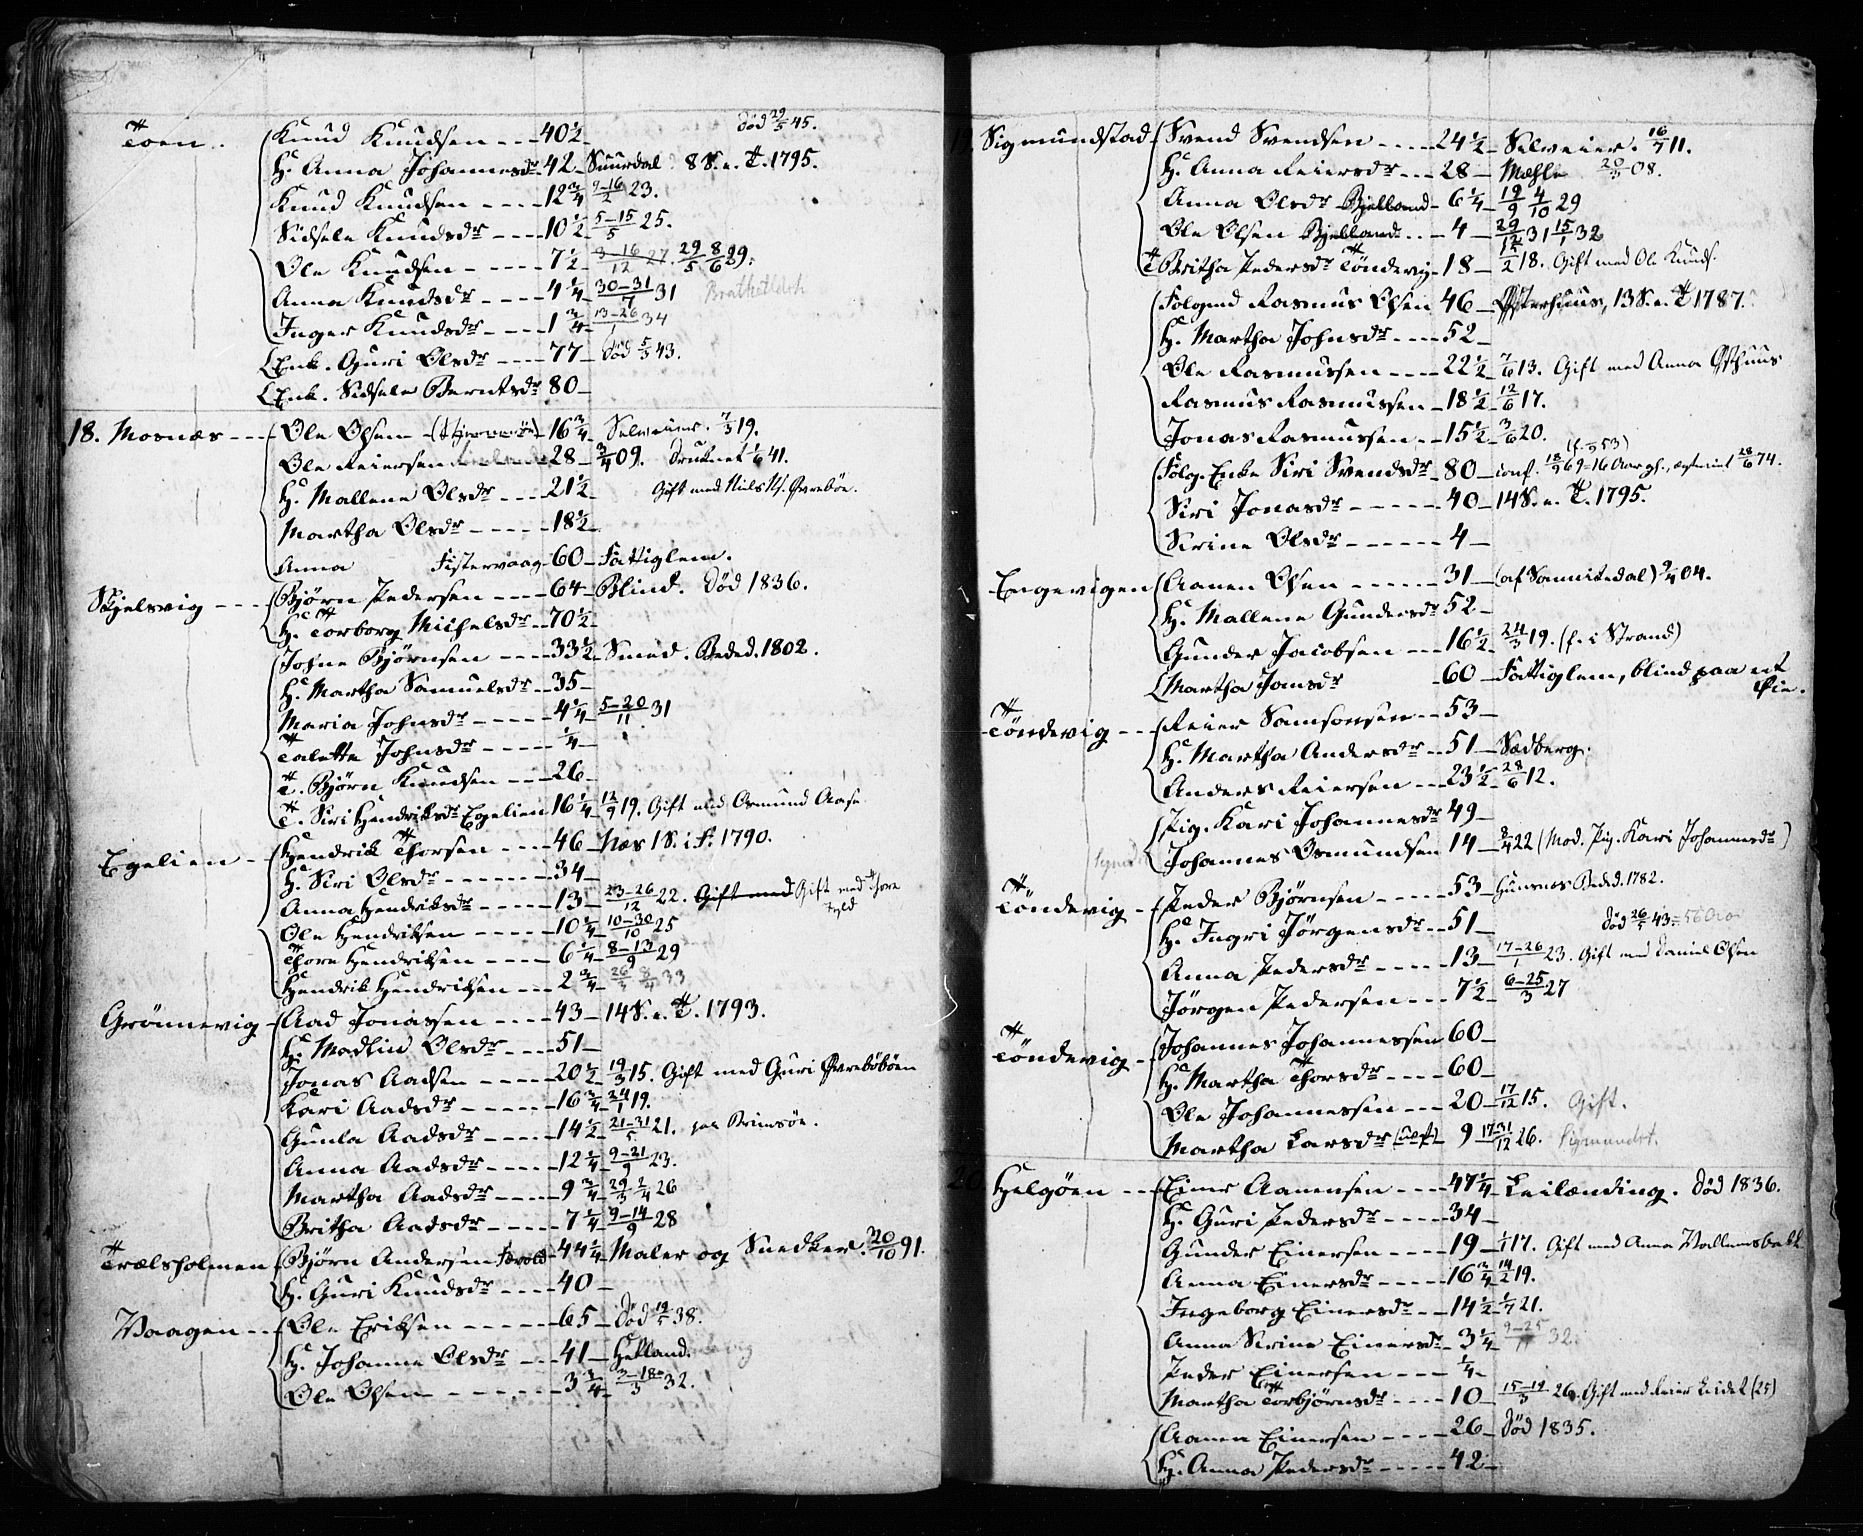 Toen. Knud Knudsen 40½ død 29/5 45.
H. Anna Johannesdr 42 Suurdal 8 S. e. T. 1795.
Knud Knudsen 12¾ 2-16/2 23.
Sidsele Knudsdr 10½ 5-15/5 25.
Ole Knudsen 7½ 3-16/12 27. 29/5 8/6 29.
Anna Knudsdr 4¼ 30-31/7 31
Inger Knudsdr 1¾ 13-26/1 34
Enk. Guri Olsdr 77 død 5/3 43.
Enk. Sidsele Berntsdr 80
18. Mosnæs Ole Olsen 16¾ Selveier. 7/3 19.
Ole Reiersen 28 3/4 09. Druknet 1/6 41.
H. Mallene Olsdr 21½ Gift med Niels N. Øvrebøe.
Martha Olsdr 18½
Anna Fistervaag 60 Fattiglem.
Skjelsvig Bjørn Pedersen 64 Blind. Død 1836.
H. Torborg Michelsdr 70½
Johne Bjørnsen 33½ Smed. Beded. 1802.
H. Martha Samuelsdr 35
Maria Johnsdr 4¼ 5-20/11 31
Talette Johnsdr ¼
T. Bjørn Knudsen 26
T. Siri Hendriksdr Egelien 16¼ 12/9 19. Gift med Osmund Aase
Egelien Hendrik Thorsen 46 Næs 1 S. i F. 1790.
H. Siri Olsdr 34
Anna Hendriksdr 13 23-26/12 22. Gift med Gift med Thore
Ole Hendriksen 10¼ 10-30/10 25
Thore Hendriksen 6¼ 8-13/9 29
Hendrik Hendriksen 2¾ 33
Grønnevig Aad Jonassen 43 14 S. e. T. 1793.
H. Madlin Olsdr 51
Jonas Aadsen 20½ 19/3 15. Gift med Guri Øvrebøbøen
Kari Aadsdr 16¾ 24/1 19.
Gunla Aadsdr 14½ 21-31/5 21. paa Brimsøe.
Anna Aadsdr 12¼ 9-21/9 23.
Martha Aadsdr 9¾ 29/3 2/4 26
Britha Aadsdr 7¼ 9-14/9 28
Trælsholmen Bjørn Andersen 44¼ Maler og Snedker. 30/10 91.
H. Guri Knudsdr 40
Vaagen Ole Eriksen 65 død 19/5 38.
H. Johanne Olsdr 41 Helland.
Ole Olsen 3¾ 3-18/3 32.
Sigmundstad Svend Svendsen 24½ Selveier. 16/7 11.
H. Anna Reiersdr 28 Mæhle 20/3 08.
Anna Olsdr Bjelland 6¼ 19/9 4/10 29
Ole Olsen Bjelland 4 29/12 31 15/1 32
T. Britha Pedersdr Tøndevig 18 15/2 18. Gift med Ole Knuds.
Følgmd Rasmus Olsen 46 Østerhuus, 13 S. e. T. 1787.
H. Martha Johnsdr 52
Ole Rasmussen 22½ 7/6 13. Gift med Anna Østhuus
Rasmus Rasmussen 18½ 12/6 17.
Jonas Rasmussen 15½ 3/6 20.
Følg. Enke Siri Svendsdr 80 conf. 18/9 69 = 16 Aar gl., ægtviet 28/6 74.
Siri Jonasdr 40 14 S. e. T. 1795.
Sirine Olsdr 4
Engevigen Aanen Olsen 31 (af Sannikedal) 9/4 04.
H. Mallene Gundersdr 52
Gunder Jacobsen 16½ 24/3 19. (f. i Strand)
Martha Jonsdr 60 Fattiglem, blind paa et
Øie.
Tøndevig Reier Samsonsen 53
H. Martha Andersdr 51 Sædberg.
Anders Reiersen 23½ 28/6 12.
Pig. Kari Johannesdr 49
Johannes Osmundsen 14 8/4 22 (Mod. Pig. Kari Johannesdr)
Tøndevig Peder Bjørnsen 53 Hunsnes Beded. 1782.
H. Ingri Jørgensdr 51 død 26/5 43
Anna Pedersdr 13 17-26/1 23. Gift med Daniel Olsen
Jørgen Pedersen 7½ 6-25/3 27
Tøndevig Johannes Johannessen 60
H. Martha Thorsdr 60
Ole Johannessen 20 17/12 15. Gift.
Martha Larsdr 9 17 31/12 26. Sigmundst.
20 Helgøen Einer Aanensen 47¼ Leilænding. Død 1836.
H. Guri Pedersdr 34
Gunder Einersen 19 1/1 17. Gift med Anna Vallemsbakk
Anna Einersdr 16¾ 14/2 19.
Ingeborg Einersdr 14½ 1/7 21.
Anna Sirine Einersdr 3¼ 9-25 32.
Peder Einersen ¼
Martha Torbjørnsdr 10 15-19/3 26. Gift med Reier Leidet (25)
Aanen Einersen 26 Død 1835.
H. Anna Pedersdr 42